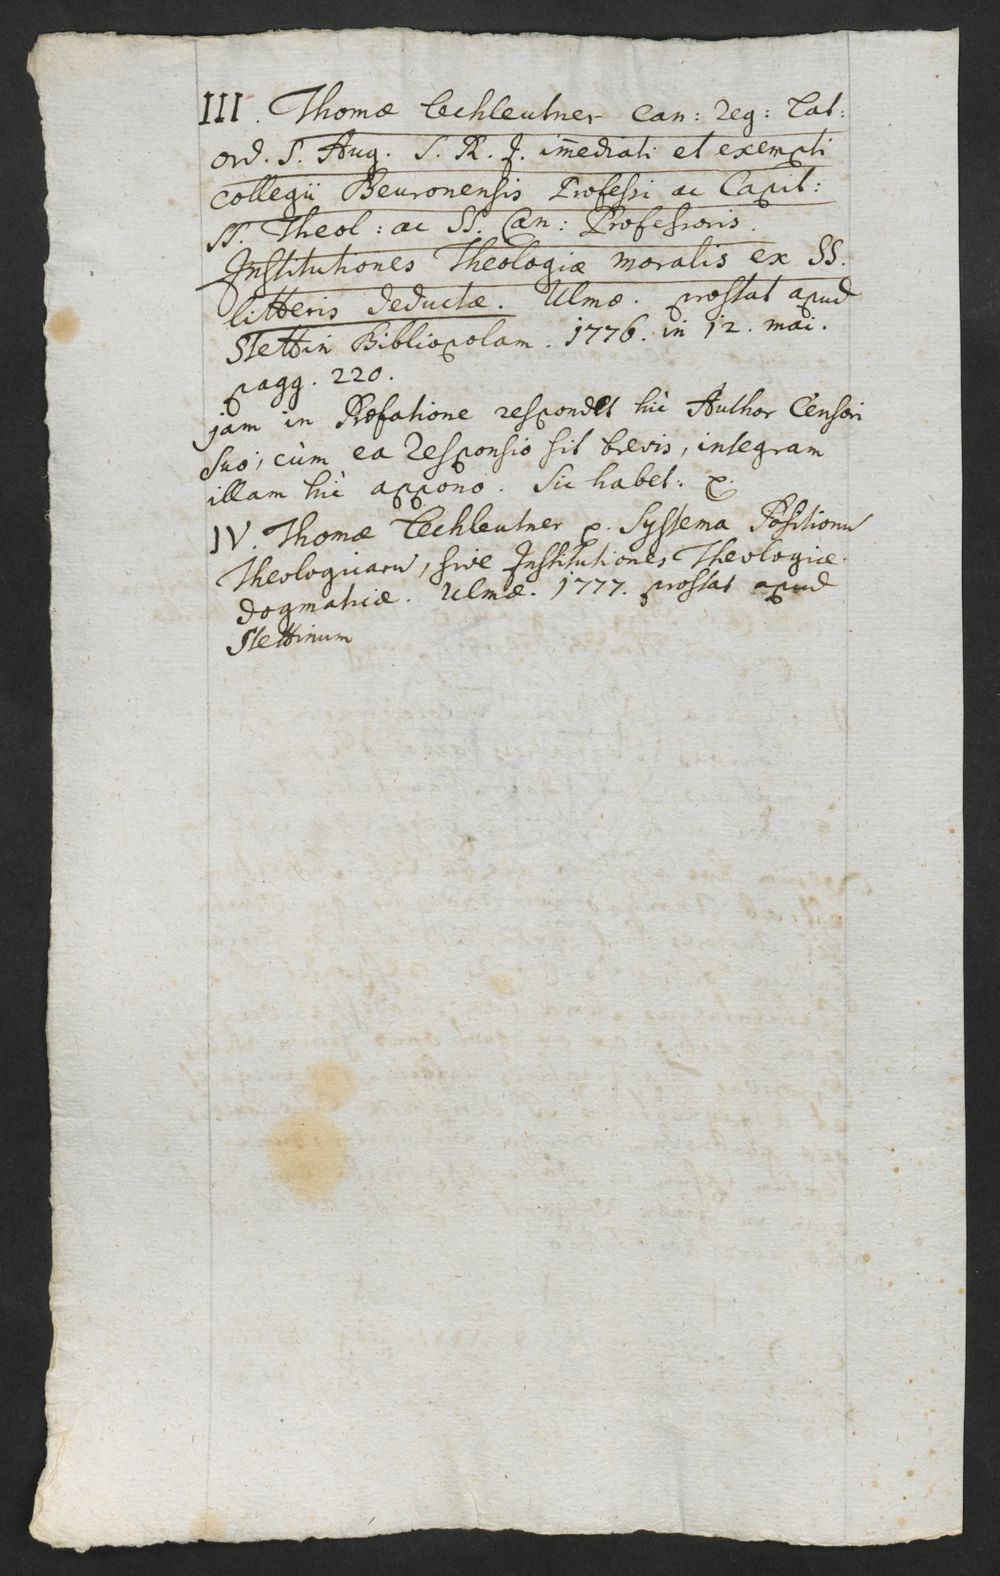 III. Thomæ Lechleutner Can: Reg: Lat:
ord. S. Aug. S. R. J. im̅ediati et exempti
collegii Beuronensis Professi ac Capit:
SS. Theol: ac SS. Can: Professoris.
Institutiones Theologiæ moralis ex SS.
litteris deductæ. Ulmæ. prostat apud
Stettin Bibliopolam. 1776. in 12. mai.
pagg. 220.
jam in Præfatione respondet hic Author Censori
suo; cùm ea Responsio sit brevis, integram
illam hìc appono. Sic habet:
IV. Thomæ Lechleutner Systema Positionu̅
Theologicaru̅, sive Institutiones Theologiæ
dogmaticæ. Ulmæ. 1777. prostat apud
Stettinum